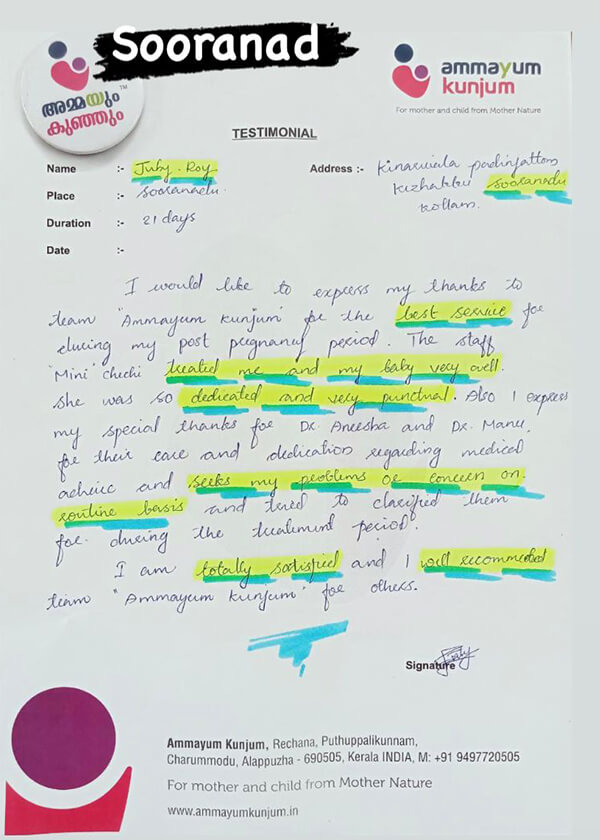 Sooranad
അമ്മയും
കുഞ്ഞും
TM
ammayum
kunjum
For mother and child from Mother Nature
TESTIMONIAL
Name :- Juby. Roy
Address :- Kinaruvila padinjattom
Kizhakku Sooranadu
Kollam.
Place :- Sooranadu.
Duration :- 21 days
Date :-
I would like to express my thanks to
team "Ammayum Kunjum" for the best service for
during my post pregnancy period. The staff
"Mini" chechi treated me and my baby very well.
She was so dedicated and very punctual. Also I express
my special thanks for Dr. Aneesha and Dr. Manu,
for their care and dedication regarding medical
adveic and seeks my problems or concern on
routine basis and tried to clarified them
for during the treatment period.
I am totally satisfied and I will recommeded
team "Ammayum Kunjum" for others.
Signature
Ammayum Kunjum, Rechana, Puthuppalikunnam,
Charummodu, Alappuzha - 690505, Kerala INDIA, M: +91 9497720505
For mother and child from Mother Nature
www.ammayumkunjum.in